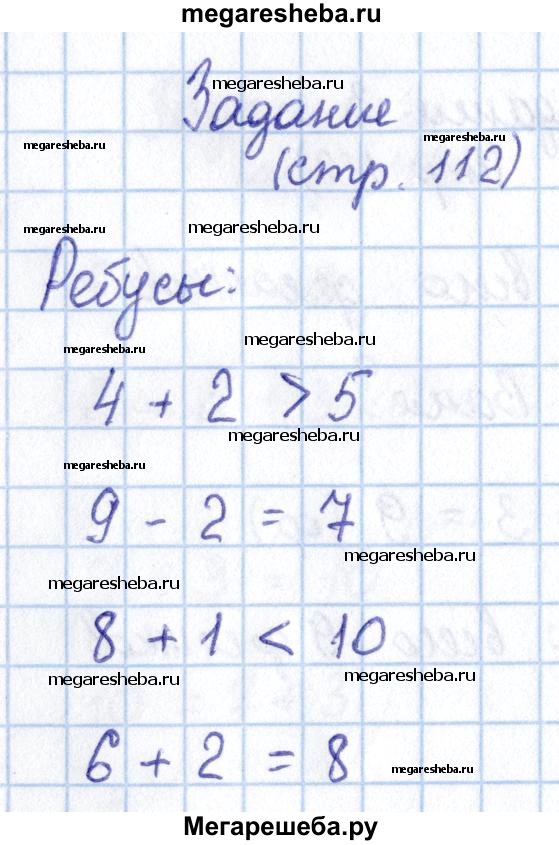 megaresheba.ru
megaresheba.ru
Задание
megaresheba.ru
megaresheba.ru
(стр. 112)
megaresheba.ru
megaresheba.ru
Ребусы:
megaresheba.ru
megaresheba.ru
4 + 2 > 5
megaresheba.ru
megaresheba.ru
9 - 2 = 7
megaresheba.ru
megaresheba.ru
8 + 1 < 10
megaresheba.ru
megaresheba.ru
6 + 2 = 8
megaresheba.ru
Мегарешеба.ру